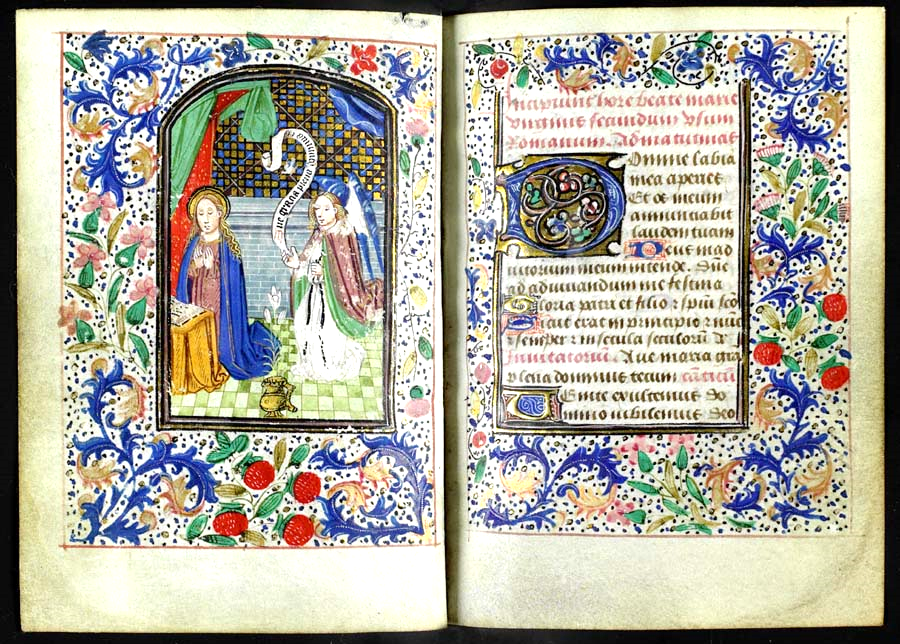 ave gracia plena dominus
Incipiunt hore beate marie
virginis secundum usum
Romanum. Ad matutinas
Domine labia
mea aperies
Et os meum
annunciabit
laudem tuam
Deus in ad
iutorium meum intende. Dne
ad adiuvandum me festina
Gloria patri et filio et spiui sco
Sicut erat in principio et nuc
et semper et in secula seculorū
Invitatoriū. Ave maria gra
plena dominus tecum
Venite exultemus do
mino iubilemus deo